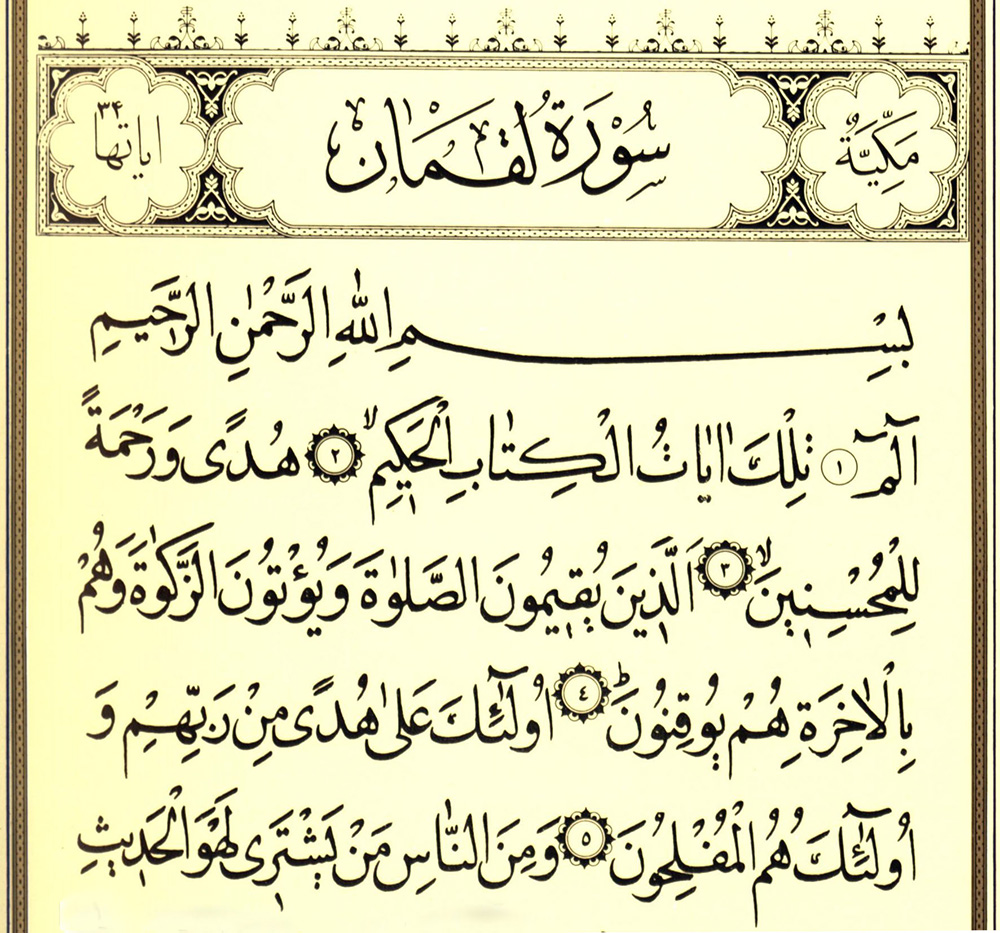 مَكِّيَّةٌ
سُوْرَةُ لُقْمَانَ
اياتها ٣۴
بِسْمِ اللّٰهِ الرَّحْمٰنِ الرَّحٖيمِ
الٓمٓ ١ تِلْكَ اٰيَاتُ الْكِتَابِ الْحَكٖيمِۙ ٢ هُدًى وَرَحْمَةً
لِلْمُحْسِنٖينَۙ ٣ اَلَّذٖينَ يُقٖيمُونَ الصَّلٰوةَ وَيُؤْتُونَ الزَّكٰوةَ وَهُمْ
بِالْاٰخِرَةِ هُمْ يُوقِنُونَؕ ٤ اُو۬لٰٓئِكَ عَلٰى هُدًى مِنْ رَبِّهِمْ وَ
اُو۬لٰٓئِكَ هُمُ الْمُفْلِحُونَ ٥ وَمِنَ النَّاسِ مَنْ يَشْتَرٖى لَهْوَ الْحَدٖيثِ